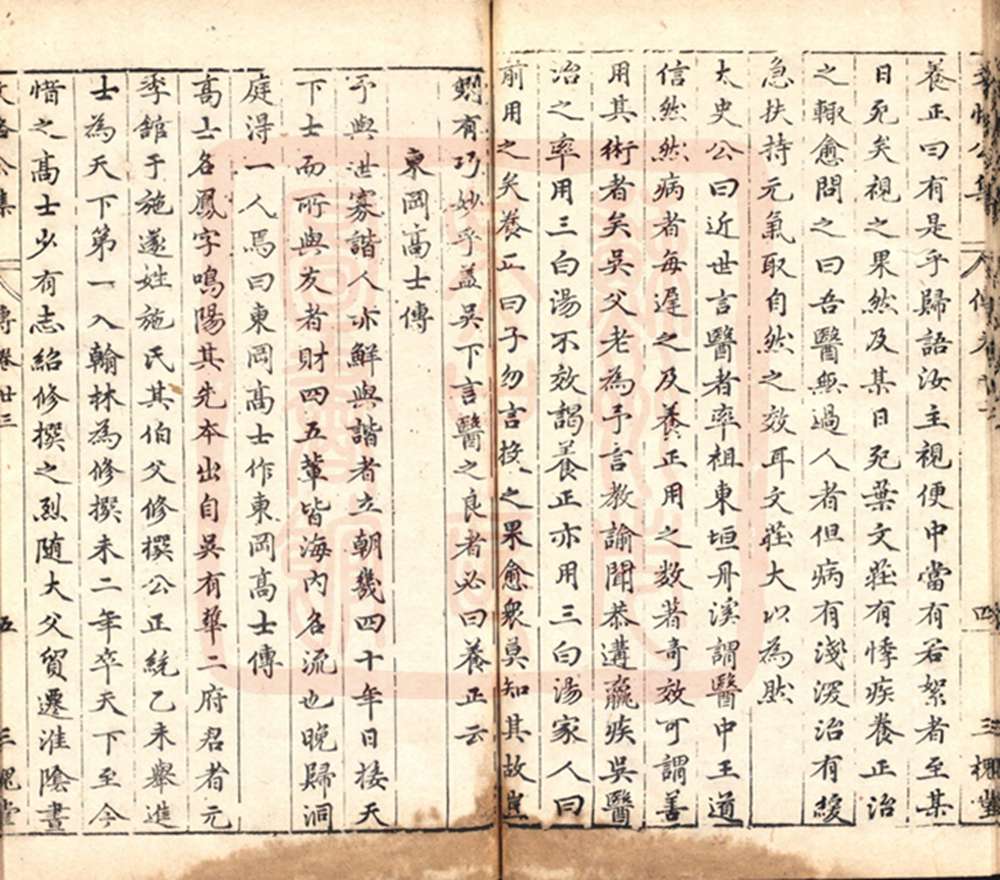 養正曰有是乎歸語汝主視便中當有若絮者至某
日死矣視之果然及某日死葉文莊有悸疾養正治
之輒愈問之曰吾醫無過人者但病有淺深治有緩
急扶持元氣取自然之效耳文莊大以為然
太史公曰近世言醫者率祖東垣丹溪謂醫中王道
信然然病者每遲之及養正用之數著奇效可謂善
用其術者矣吳父老為予言教諭聞恭遘羸疾吳醫
治之率用三白湯不效謁養正亦用三白湯家人曰
前用之矣養正曰子勿言投之果愈衆莫知其故豈
劑有巧妙乎蓋吳下言醫之良者必曰養正云
東岡高士傳
予與世寡諧人亦鮮與諧者立朝幾四十年日接天
下士而所與友者財四五輩皆海內名流也晚歸洞
庭得一人焉曰東岡高士作東岡高士傳
高士名鳳字鳴陽其先本出自吳有華二府君者元
季舘于施遂姓施氏其伯父修撰公正統乙未舉進
士為天下第一入翰林為修撰未二年卒天下至今
惜之高士少有志紹修撰之烈随大父賈遷淮陰晝
文恪公集 傳卷廿三 五 三槐堂